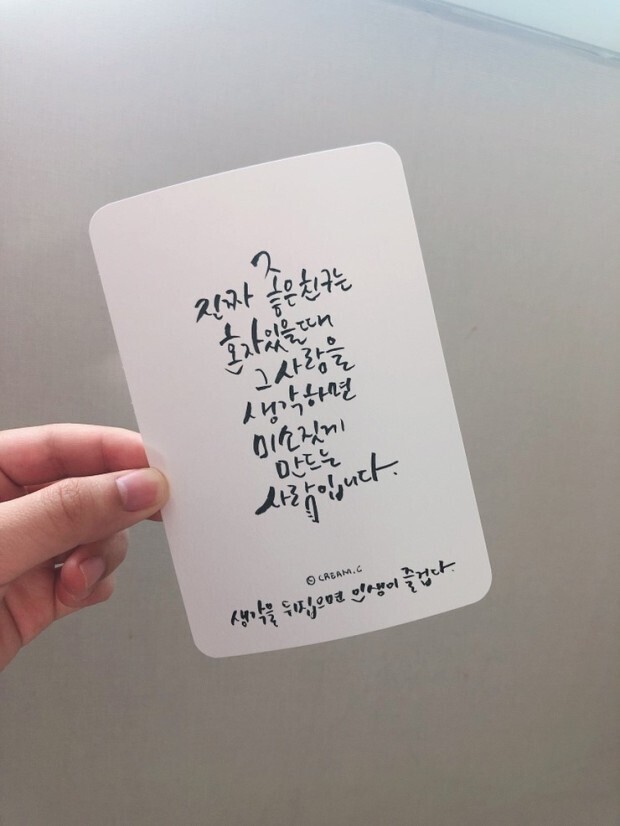 진짜 좋은친구는
혼자있을때
그사람을
생각하면
미소짓게
만드는
사람입니다.
© CREAM.C
생각을 뒤집으면 인생이 즐겁다.